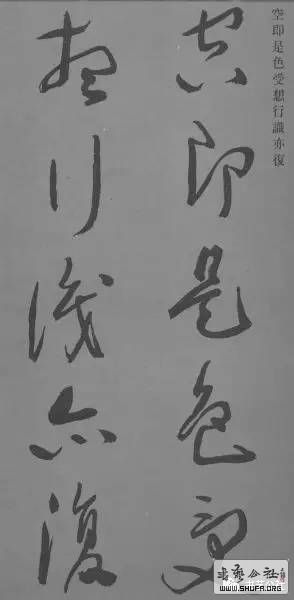 空即是色受想行識亦復
空即是色受
想行識亦復
書藝公社
WWW.SHUFA.ORG